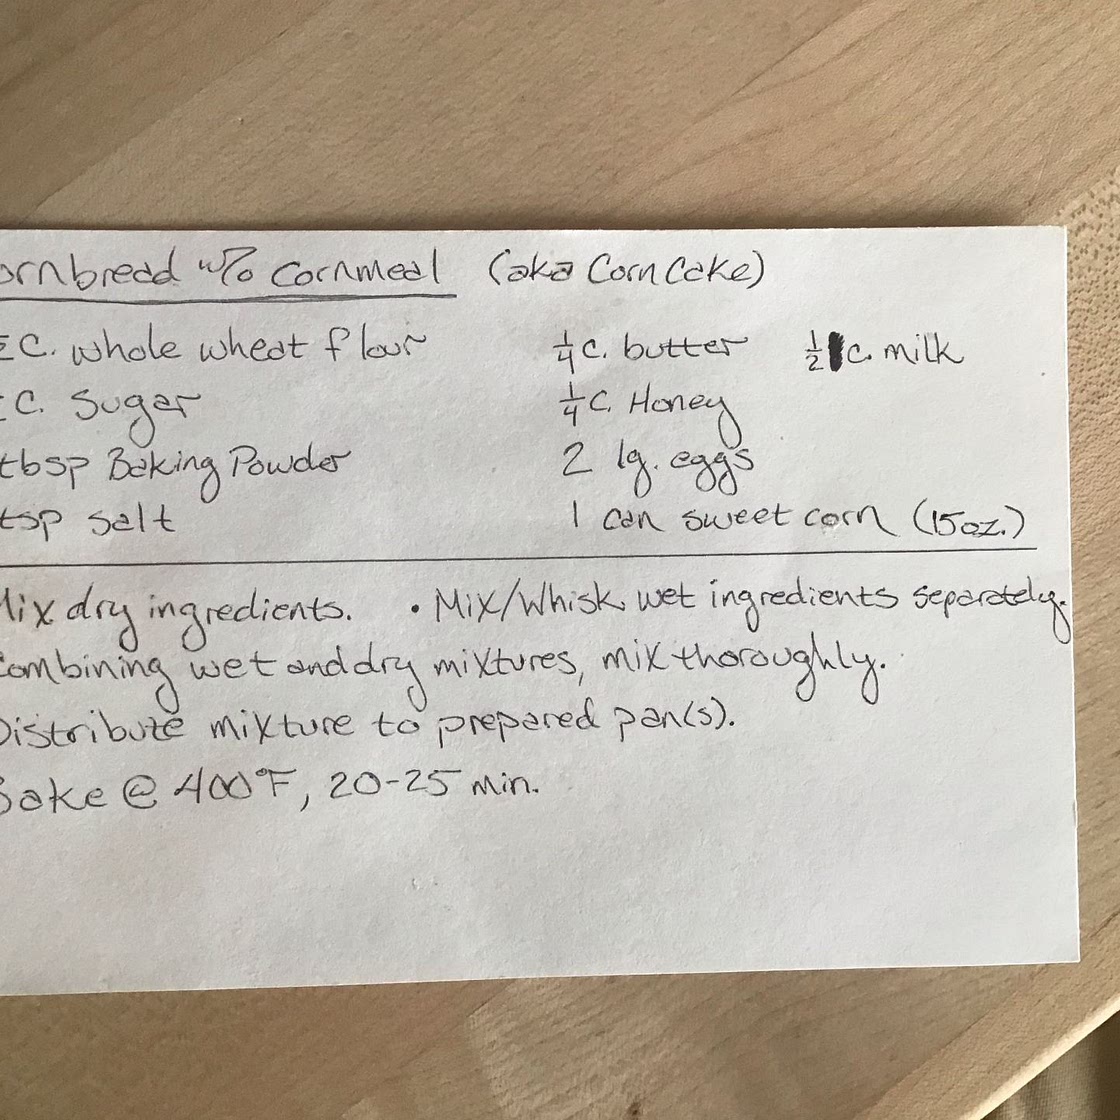 ornbread w/o cornmeal (aka Corn Cake)
C. whole wheat flour ¼ c. butter ½ c. milk
C. Sugar ¼ C. Honey
tbsp Baking Powder 2 lg. eggs
tsp salt 1 can sweet corn (15oz.)
Mix dry ingredients. • Mix/Whisk wet ingredients separately.
Combining wet and dry mixtures, mix thoroughly.
Distribute mixture to prepared pan(s).
Bake @ 400°F, 20-25 min.